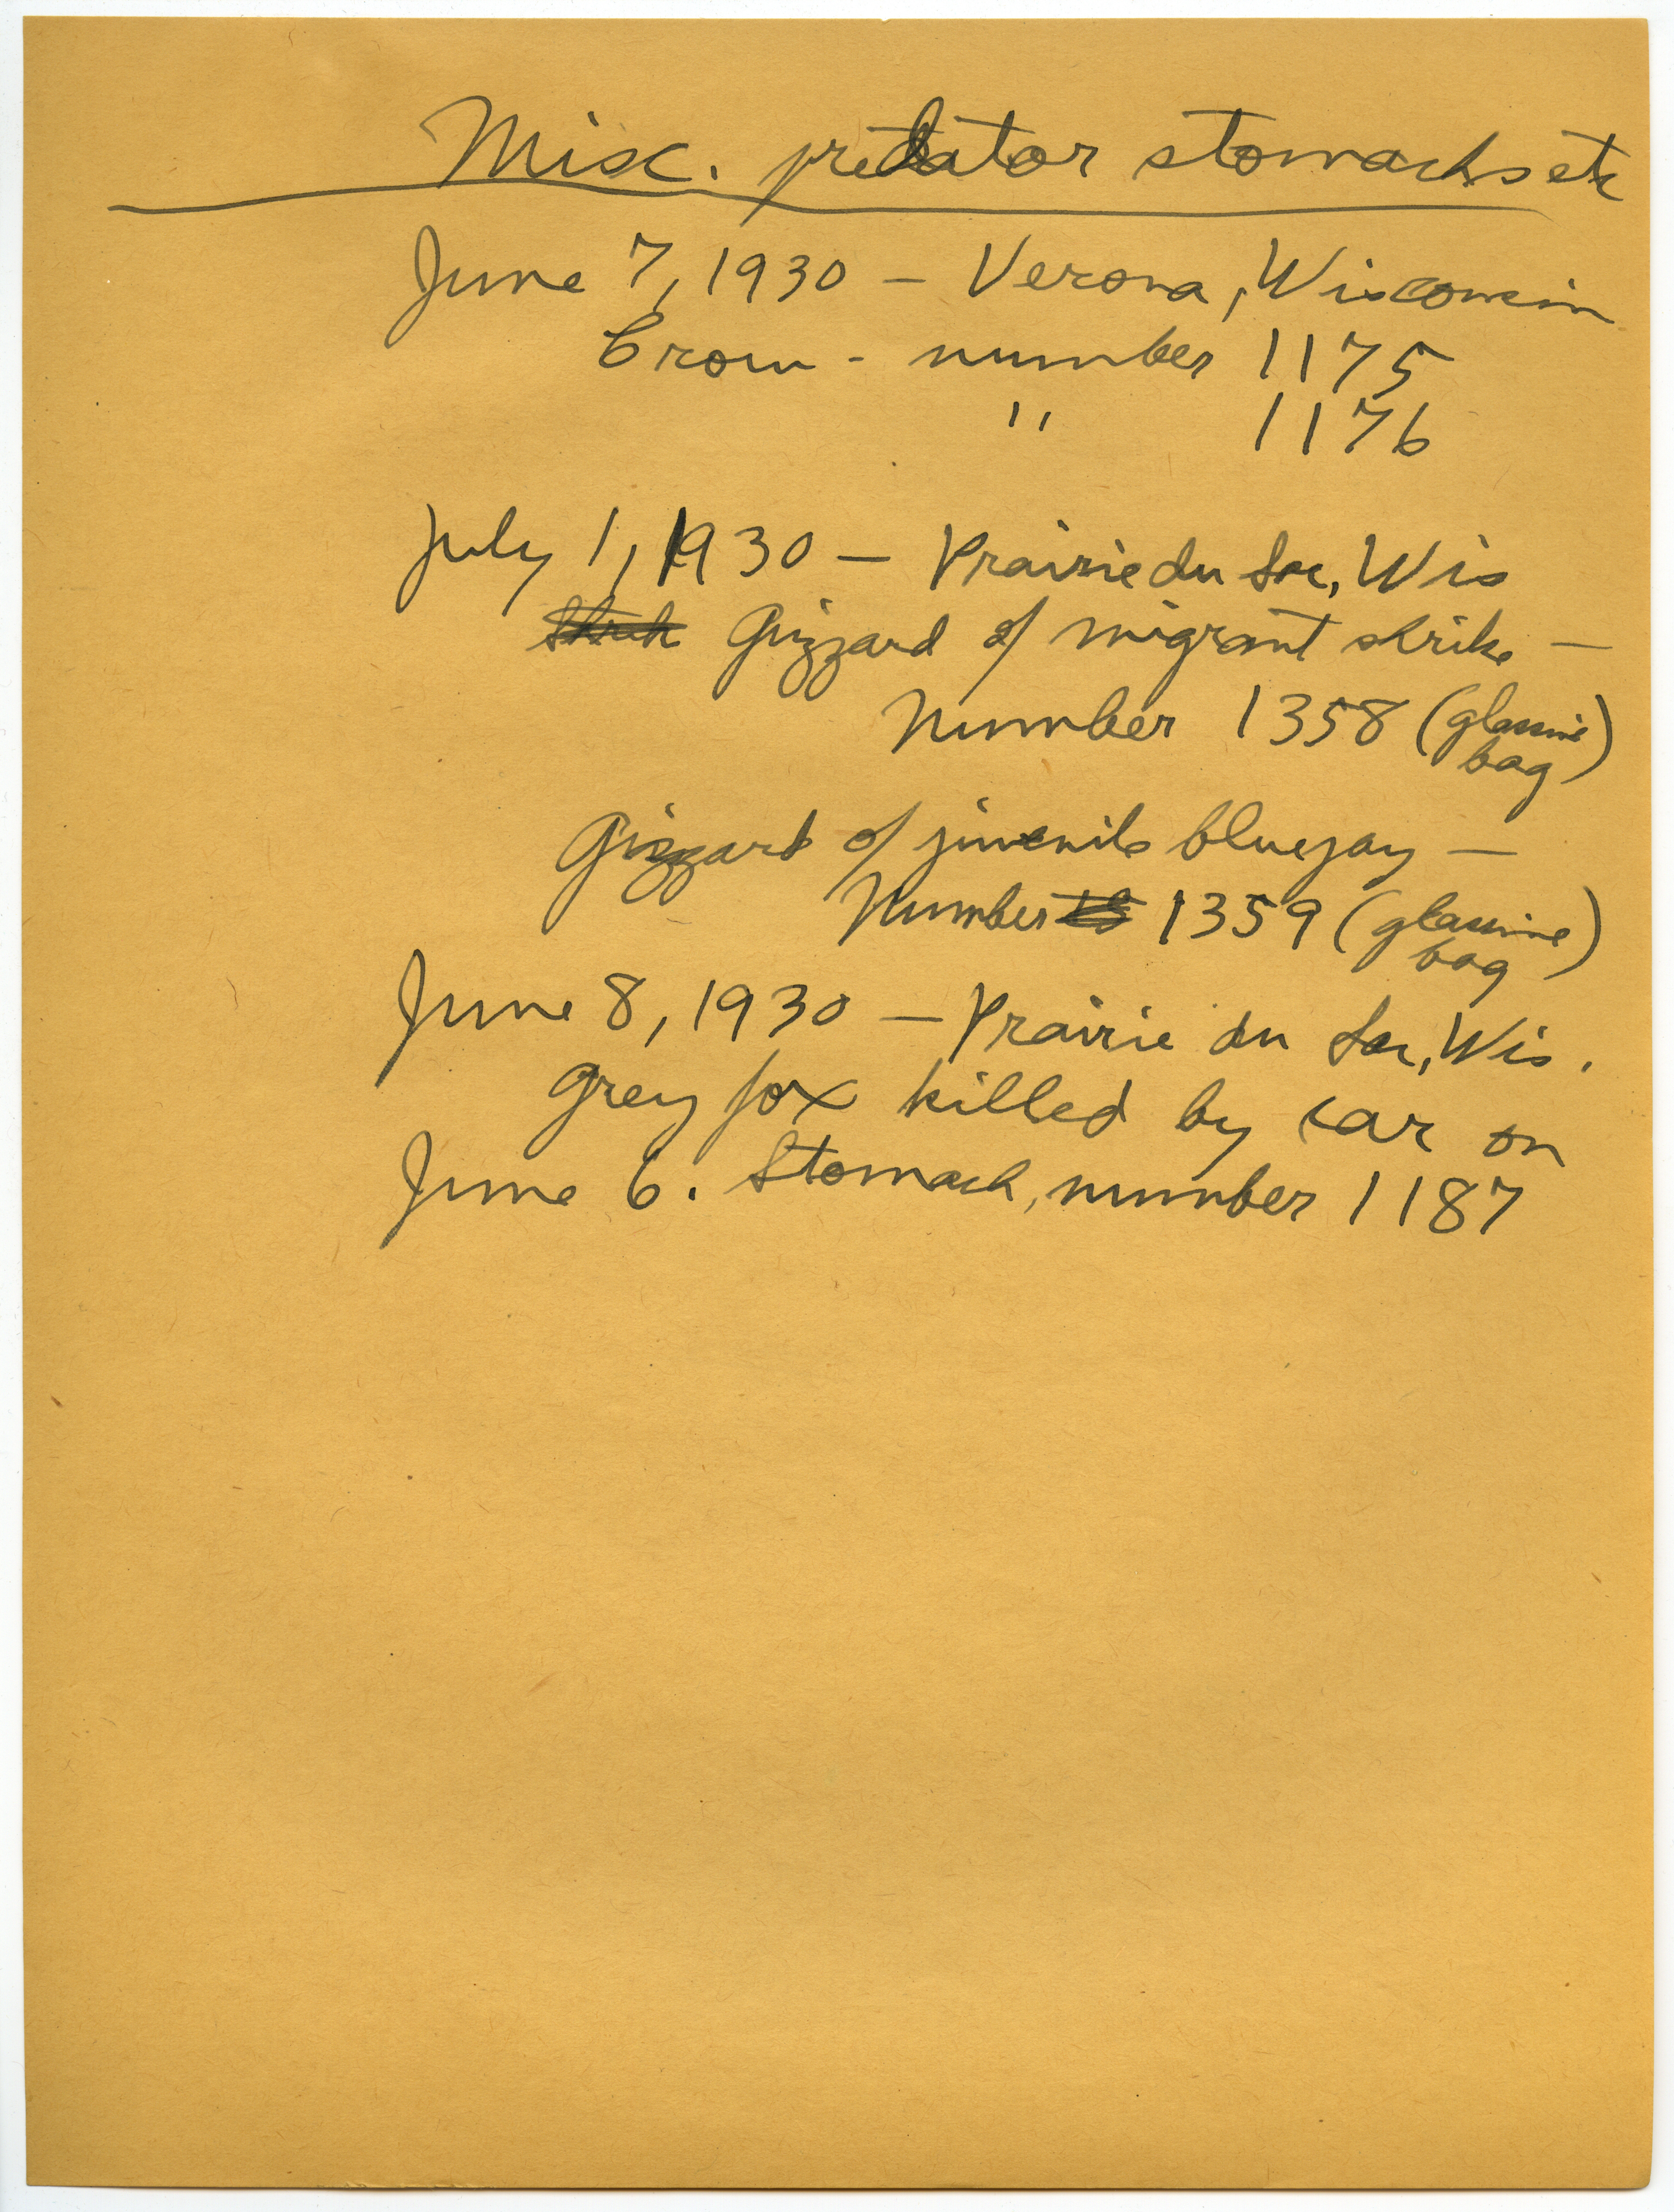 Misc. predator stomachs etc
June 7, 1930 – Verona, Wisconsin
Crow - number 1175
" 1176
July 1, 1930 – Prairie du Sac, Wis
Gizzard of migrant shrike –
Number 1358 (glassine bag)
Gizzard of juvenile bluejay –
Number 1359 (glassine bag)
June 8, 1930 – Prairie du Sac, Wis.
Grey fox killed by car on
June 6. Stomach, number 1187